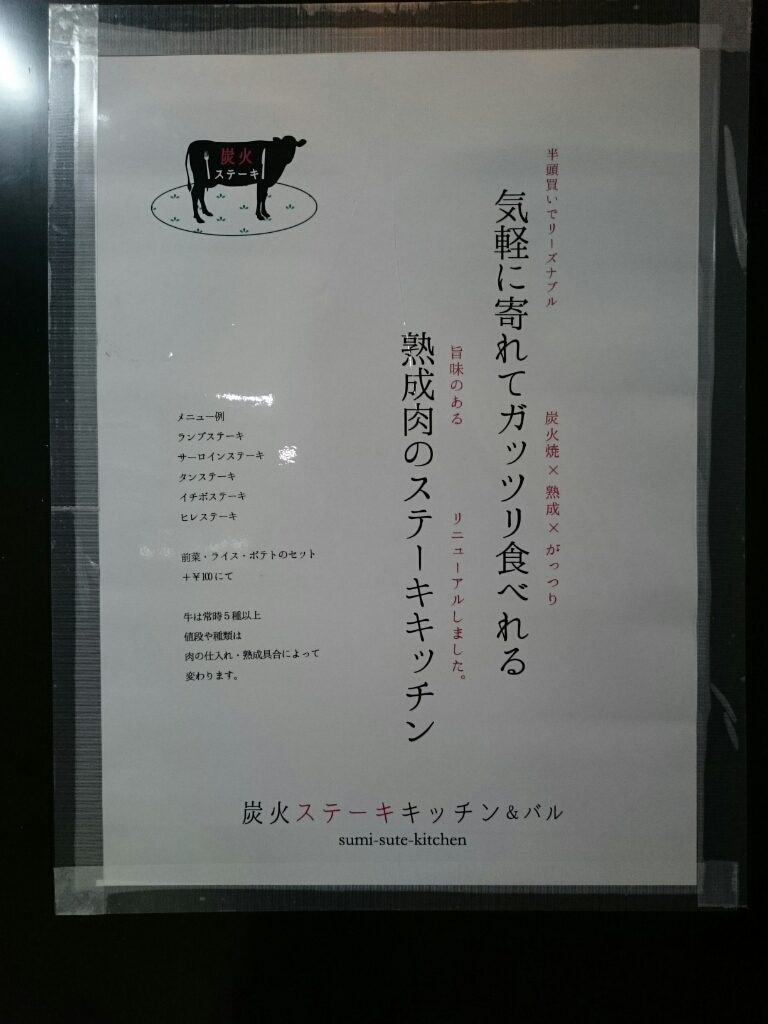 炭火
ステーキ
半頭買いでリーズナブル
炭火焼×熟成×がっつり
気軽に寄れてガッツリ食べれる
旨味のある
リニューアルしました。
熟成肉のステーキキッチン
メニュー例
ランプステーキ
サーロインステーキ
タンステーキ
イチボステーキ
ヒレステーキ
前菜・ライス・ポテトのセット
+¥100にて
牛は常時5種以上
値段や種類は
肉の仕入れ・熟成具合によって
変わります。
炭火ステーキキッチン&バル
sumi-sute-kitchen